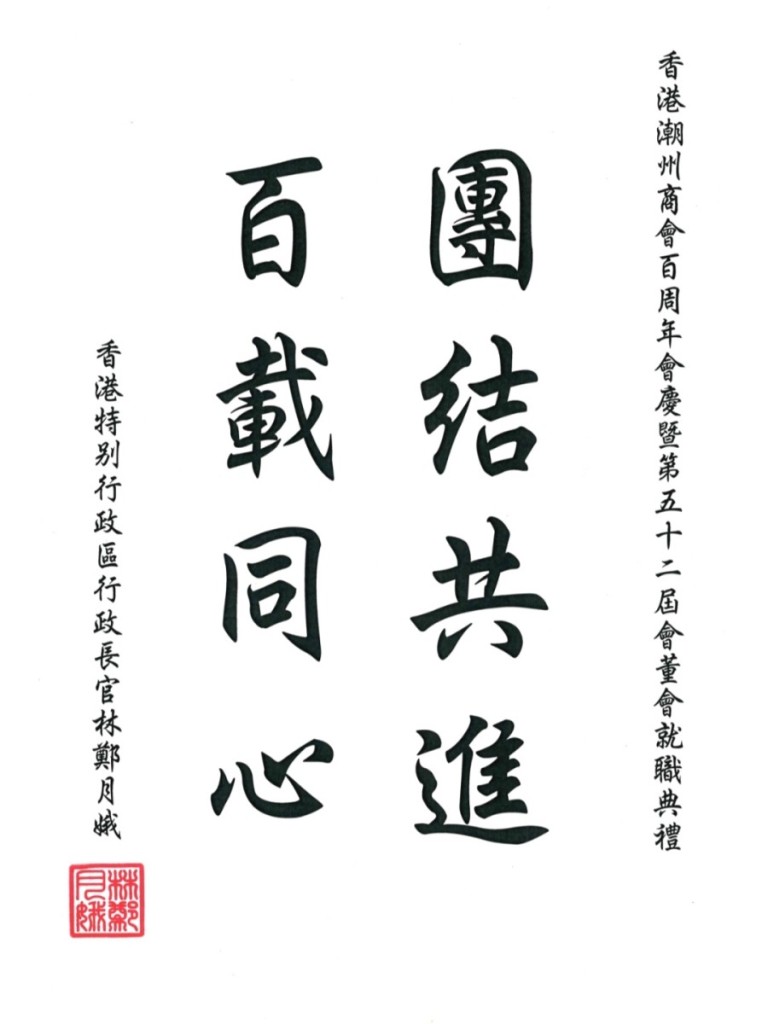 香港潮州商會百周年會慶暨第五十二屆會董會就職典禮
團結共進
百載同心
香港特別行政區行政長官林鄭月娥
林鄭月娥